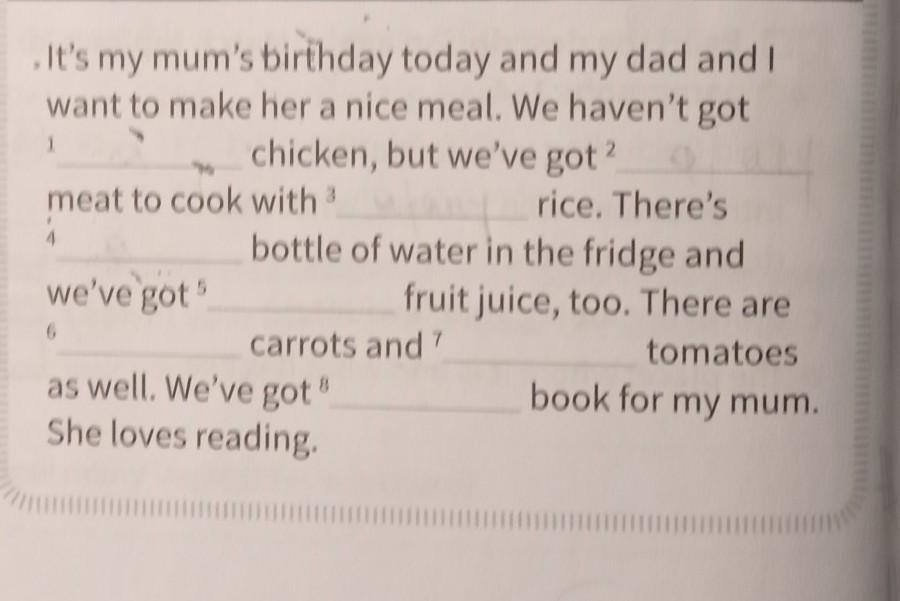 It's my mum's birthday today and my dad and I
want to make her a nice meal. We haven't got
1 __________ chicken, but we've got 2 __________
meat to cook with 3 __________ rice. There's
4 __________ bottle of water in the fridge and
we've got 5 __________ fruit juice, too. There are
6 __________ carrots and 7 __________ tomatoes
as well. We've got 8 __________ book for my mum.
She loves reading.